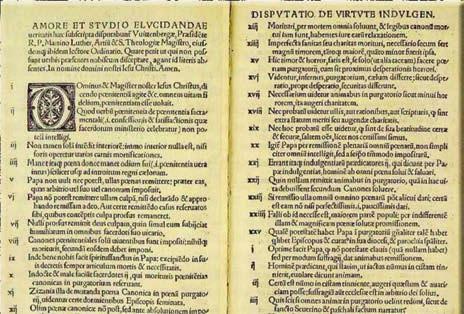 AMORE ET STVDIO ELVCIDANDAE
ueritatis hæc subscripta disputabunť Vuittenbergæ, Præsidẽte
R. P. Martino Luther, Artiũ & S. Theologiæ Magistro, eius-
dem ibidem lectore Ordinario. Quare petit ut qui non pos-
sunt uerbis præsentes nobiscum disceptare, agant id literis ab-
sentes. In nomine domini nostri Iesu Christi. Amen.
i Dominus & Magister noster Iesus Christus, di-
cendo pœnitentiã agite &c. omnem uitam fi-
delium, pœnitentiam esse uoluit.
ij Quod uerbũ pœnitentia de pœnitentia sacra-
mentali (.i. confessionis & satisfactionis quæ
sacerdotum ministerio celebratur) non po-
test intelligi.
iij Non tamen solã intẽdit interiorẽ: immo interior nulla est, nisi
foris operetur uarias carnis mortificationes.
iiij Manet itaqʒ pœna donec manet odium sui (.i. pœnitentia uera
intus) scilicet usqʒ ad introitum regni cælorum.
v Papa non uult nec potest, ullas pœnas remittere: præter eas,
quas arbitrio uel suo uel canonum imposuit.
vj Papa nõ potest remittere ullam culpã, nisi declarãdo & appro-
bando remissam a deo. Aut certe remittẽdo casus reseruatos
sibi, quibus contẽptis culpa prorsus remaneret.
vij Nulli prorsus remittit deus culpam, quin simul eum subijciat
humiliatum in omnibus sacerdoti suo uicario.
viij Canones pœnitentiales solũ uiuentibus sunt impositi: nihilqʒ
morituris, secundũ eosdem debet imponi.
ix Inde bene nobis facit spiritussanctus in Papa: excipiẽdo in su-
is decretis semper articulum mortis & necessitatis.
x Indocte & male faciũt sacerdotes ij, qui morituris pœnitẽtias
canonicas in purgatorium reseruant.
xj Zizania illa de mutanda pœna Canonica in pœnã purgato-
rij, uidentur certe dormientibus Episcopis seminata.
xij Olim pœnæ canonicæ nõ post, sed ante absolutionem impo
DISPVTATIO DE VIRTVTE INDVLGEN.
xiij Morituri, per mortem omnia soluunt, & legibus canonũ mor-
tui iam sunt, habentes iure earũ relaxationem.
xiiij Imperfecta sanitas seu charitas morituri, necessario secum fert
magnũ timorem, tãtoqʒ maiorẽ, quãto minor fuerit ipsa.
xv Hic timor & horror, satis est, se solo (ut alia taceam) facere pœ-
nam purgatorij, cum sit proximus desperationis horrori.
xvj Videntur, infernus, purgatorium, cælum differre: sicut despera-
tio, prope desperatio, securitas differunt.
xvij Necessarium uidetur animabus in purgatorio sicut minui hor
rorem, ita augeri charitatem.
xviij Nec probatũ uidetur ullis, aut rationibus, aut scripturis, qʒ sint
extra statum meriti seu augendæ charitatis.
xix Nec hoc probatũ esse uidetur, qʒ sint de sua beatitudine certæ
& securæ, saltem oẽs, licet nos certissimi simus.
xx Igiť Papa per remissionẽ plenariã omniũ pœnarũ, non simpli
citer omniũ intelligit, sed a seipso tãtummodo impositarũ.
xxj Errant itaqʒ indulgentiarũ prædicatores ij, qui dicunt per Pa-
pæ indulgentias, hominẽ ab omni pœna solui & saluari.
xxij Quin nullam remittit animabus in purgatorio, quã in hac ui-
ta debuissent secundum Canones soluere.
xxiij Si remissio ulla omniũ omnino pœnarũ põt alicui dari; certũ
est eam nõ nisi perfectissimis, .i. paucissimis dari.
xxiiij Falli ob id necesse est, maiorem partẽ populi: per indifferentẽ
illam & magnificam pœnæ solutæ promissionem.
xxv Qualẽ potestatẽ habet Papa ĩ purgatoriũ gñaliter talẽ habet
qlibet Episcopus & curatus in sua diocesi, & parochia spãliter.
i Optime facit Papa, qʒ nõ potestate clauis (quã nullam habet)
sed per modum suffragij, dat animabus remissionem.
ij Hominẽ prædicant, qui statim, ut iactus nũmus in cistam tin-
nierit, euolare dicunt animam.
iij Certũ est nũmo in cistam tinniente, augeri quæstum & auari-
ciam posse: suffragiũ aũt ecclesiæ est in arbitrio dei solius.
iiij Quis scit si omnes animæ in purgatorio uelint redimi, sicut de
sancto Seuerino & paschali factum narratur?